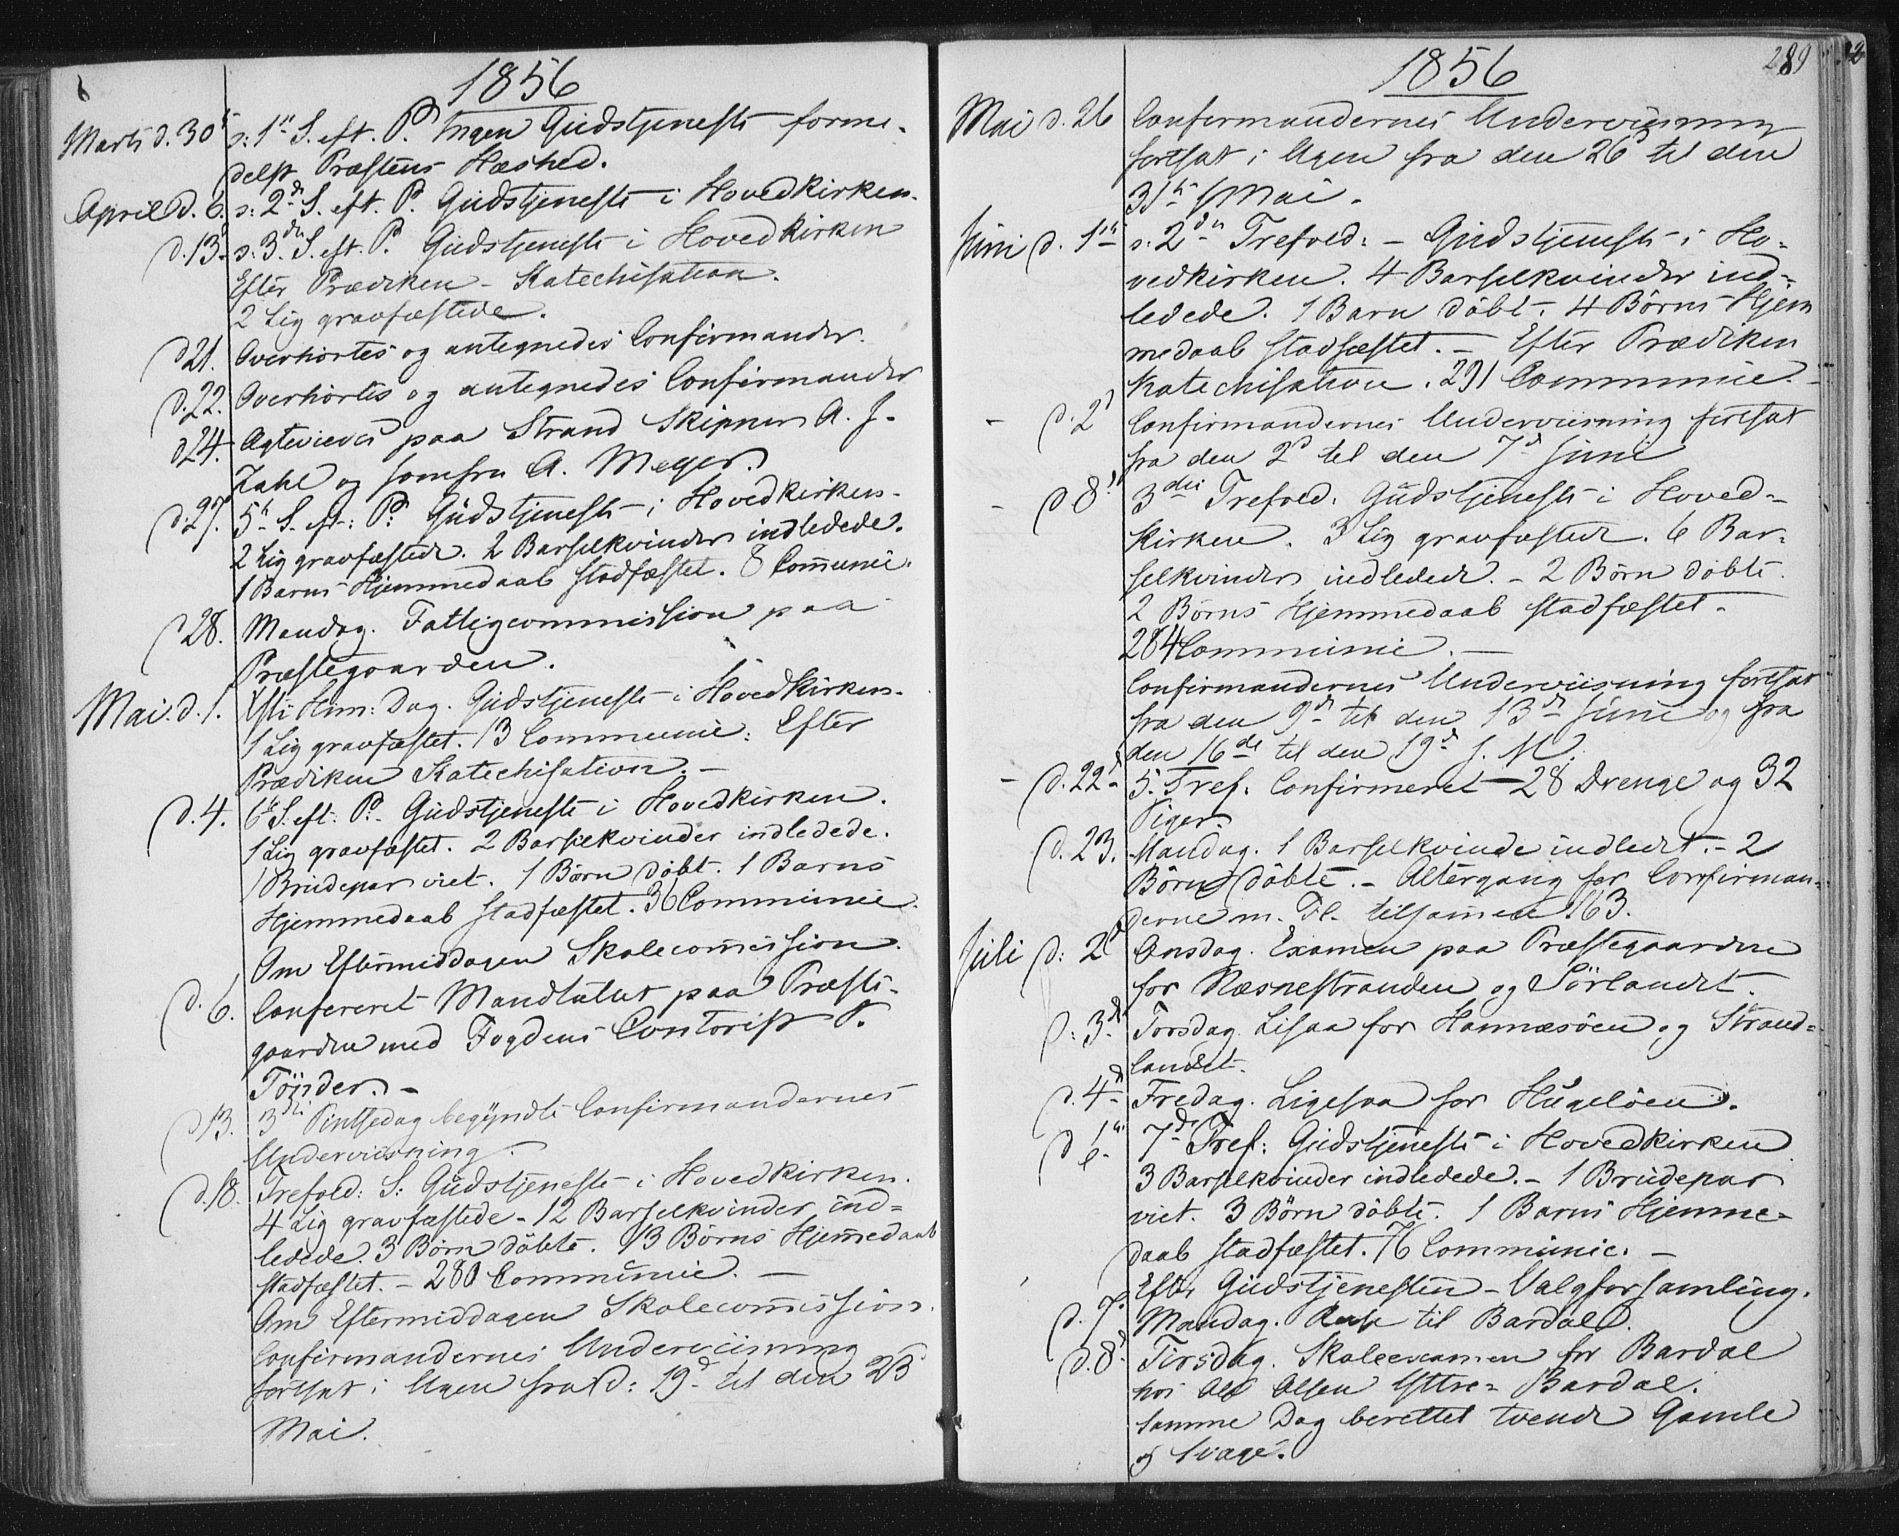 1856
Marts d. 30te s: 1ste S. eft. P. Ingen Gudstjeneste forme-
delst Præstens Hæshed.
April d. 6. s: 2den S. eft. P. Gudstjeneste i Hovedkirken.
d. 13. s: 3die S. eft. P. Gudstjeneste i Hovedkirken
Efter Prædiken - Katechisation.
2 Lig gravfæstede.
d 21. Overhørtes og antegnedes Confirmander.
d. 22. Overhørtes og antegnedes Confirmander
d 24. Ægtevievet paa Strand Skipper A. J.
Zahl og Jomfru A. Meyer.
d. 27. 5te S. eft: P. Gudstjeneste i Hovedkirken.
2 Lig gravfæstede. 2 Barselkvinder indledede.
1 Barns Hjemmedaab stadfæstet. 8 Communic.
d 28. Mandag. Fattigcommission paa
Præstegaarden.
Mai. d. 1. Chri Him: Dag. Gudstjeneste i Hovedkirken.
1 Lig gravfæstet. 13 Communic: Efter
Prædiken Katechisation. -
d. 4. 6te S. eft: P. Gudstjeneste i Hovedkirken.
1 Lig gravfæstet. 2 Barselkvinder indledede.
1 Brudepar viet. 1 Børn døbt. 1 Barns
Hjemmedaab stadfæstet. 36 Communic.
Om Eftermiddagen Skolecomission.
d. 6. Confereret Mandtallet paa Præste-
gaarden med Fogdens Contorist P.
Tønder. -
d 13. 3die Pintsedag begyndte Confirmandernes
Underviisning.
d. 18. Trefold: S: Gudstjeneste i Hovedkirken.
4 Lig gravfæstede - 12 Barselkvinder ind-
ledede. 3 Børn døbte. 13 Børns Hjemedaab
stadfæstet. - 280 Communic. -
Om Eftermiddagen Skolecomission.
Confirmandernes Underviisning
fortsat i Ugen fra d: 19de til den 23
Mai.
1856
289
Mai d. 26 Confirmandernes Underviisning
fortsat i Ugen fra den 26d til den
31te Mai.
Juni d. 1ste s. 2den Trefold: - Gudstjeneste i Ho-
vedkirken. 4 Barselkvinder ind-
ledede. 1 Barn døbt. 4 Børns Hjem
medaab stadfæstet. - Efter Prædiken
Katechisation. 291 Communic.
- d. 2d Confirmandernes Underviisning fortsat
fra den 2d til den 7de Juni
- d 8d 3die Trefold. Gudstjeneste i Hoved-
kirken. 3 Lig gravfæstede. 6 Bar-
selkvinder indledede. - 2 Børn døbte.
2 Børns Hjemmedaab stadfæstet.
284 Communic. -
Confirmandernes Underviisning fortsat
fra den 9de til den 13de Juni og fra
den 16de til den 19de s. M.
- d. 22d 5. Tref. Confirmeret 28 Drenge og 32
Piger.
d. 23. Mandag. 1 Barselkvinde indledet. - 2
Børn døbte. - Altergang for Confirman-
derne m. Fl. tilsamen 163.
Juli d: 2d Onsdag. Examen paa Præstegaarden
for Næsnestranden og Sörlandet.
d: 3d Torsdag. Lisaa for Hannæsöen og Strand-
landet.
d. 4d Fredag. Ligesaa for Hugelöen.
d 6. 7de Tref: Gudstjeneste i Hovedkirken
3 Barselkvinder indledede. - 1 Brudepar
viet. 3 Børn døbte. 1 Barns Hjemme-
daab stadfæstet. 76 Communic. -
Efter Gudstjenesten - Valgforsamling.
d. 7. Mandag. Reise til Bardal.
d. 8d Tirsdag. Skoleexamen for Bardal
hos Ole Olsen Yttre-Bardal.
Samme Dag berettet tvende Gamle
og Svage.